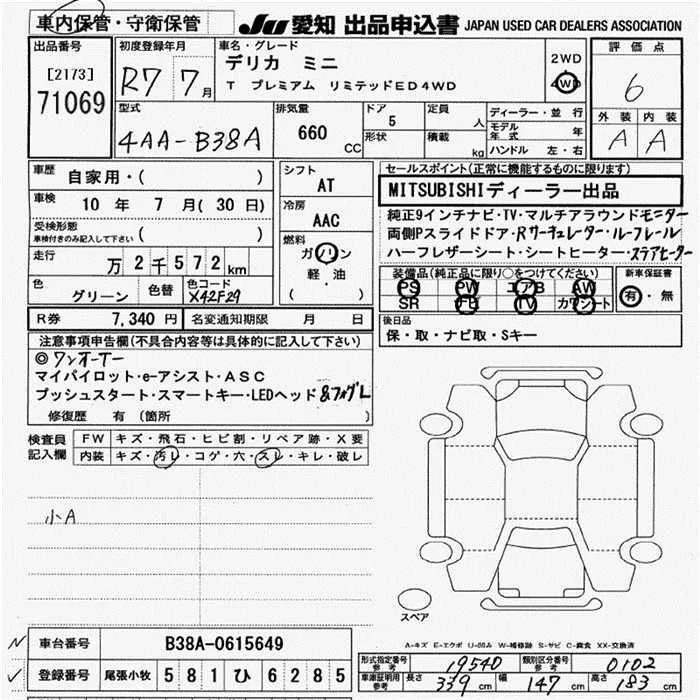 車内保管・守衛保管
JU 愛知 出品申込書 JAPAN USED CAR DEALERS ASSOCIATION
出品番号
[2173]
71069
初度登録年月
R7 7月
車名・グレード
デリカ ミニ
T プレミアム リミテッドED4WD
2WD
4WD
評価点
6
外装 内装
A A
型式
4AA-B38A
排気量
660 CC
ドア
5
形状
定員 人
積載 kg
ディーラー・並行
モデル年式 年
ハンドル 左・右
車歴
自家用・( )
車検
10年 7月(30日)
受検形態
車検付きのみ記入して下さい ( )
走行
万2千572km
色
グリーン
色替
色コード
X42F29
シフト
AT
冷房
AAC
燃料
ガソリン
軽・油
( )
R券 7,340円
名変通知期限 月 日
セールスポイント(正常に機能するものに限ります)
MITSUBISHIディーラー出品
純正9インチナビ・TV・マルチアラウンドモニター
両側Pスライドドア・Rサーキュレーター・ルーフレール
ハーフレザーシート・シートヒーター・ステアヒーター
装備品(純正品に限り○をつけてください)
PS PW エアB AW
SR ナビ TV カワシート
新車保証書
有・無
後日品
保・取・ナビ取・Sキー
注意事項申告欄(不具合内容等は具体的に記入して下さい)
◎ワンオーナー
マイパイロット・e-アシスト・ASC
プッシュスタート・スマートキー・LEDヘッド&フォグL
修復歴 有(箇所 )
検査員記入欄
FW キズ・飛石・ヒビ割・リペア跡・X要
内装 キズ・汚レ・コゲ・穴・スレ・キレ・破レ
小A
スペア
A-キズ E-エクボ U-凹み W-補修跡 S-サビ C-腐食 XX-交換済
車台番号 B38A-0615649
登録番号 尾張小牧 581 ひ 6285
型式指定番号 参考 19540
類別区分番号 参考 0102
車庫証明用 参考 長さ 339cm 幅 147cm 高さ 183cm